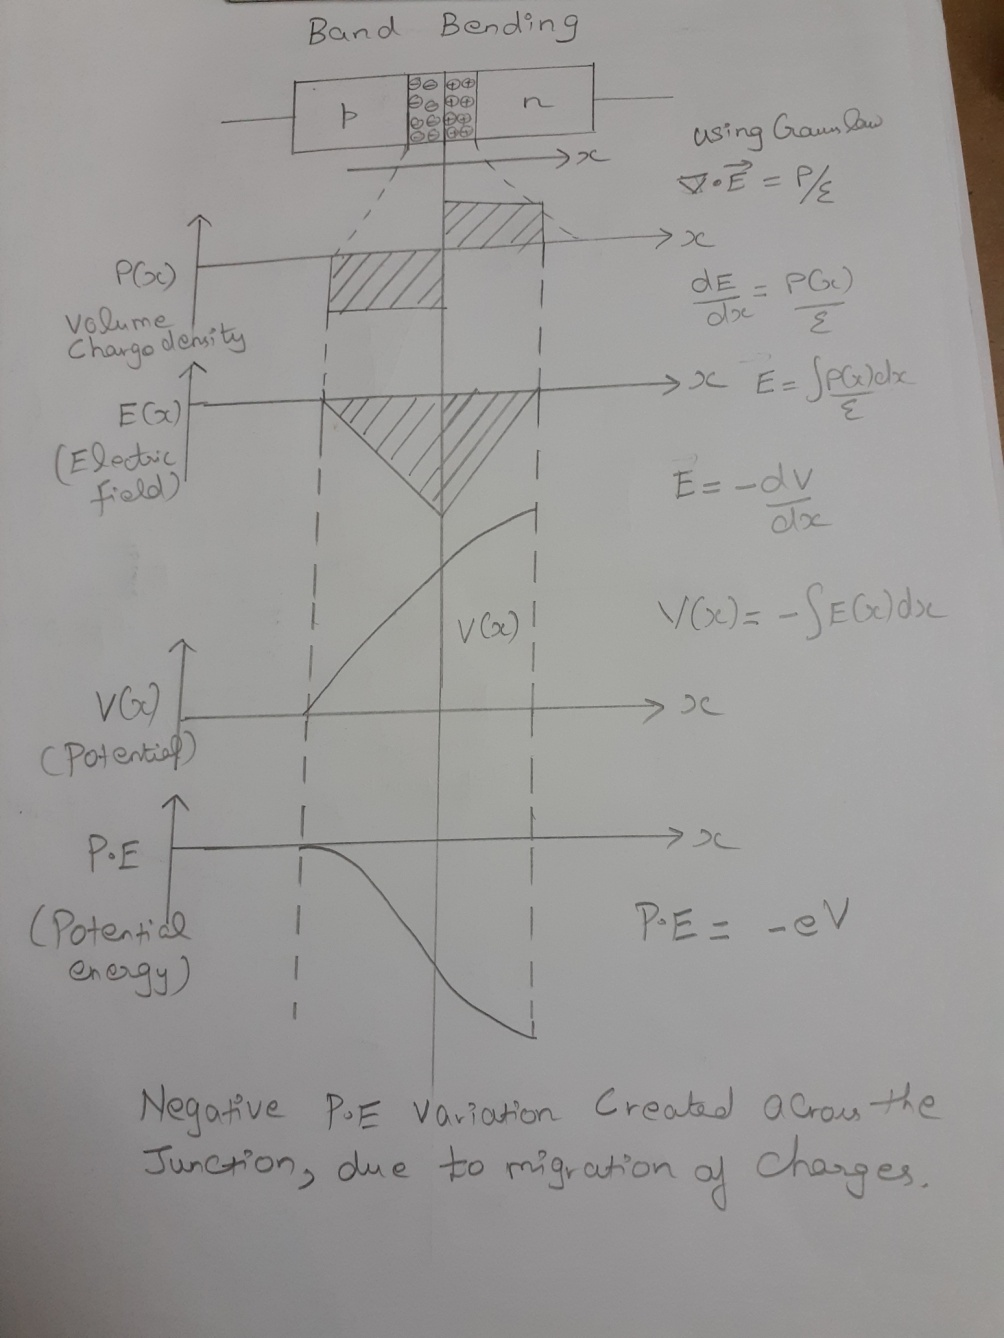 Band Bending
p
n
x
using Gauss law
∇·E⃗ = ρ/ε
x
ρ(x)
Volume
Charge density
dE/dx = ρ(x)/ε
x
E(x)
(Electric
field)
E = ∫ρ(x)dx/ε
E = -dV/dx
V(x)
V(x) = -∫E(x)dx
V(x)
(Potential)
x
P.E
(Potential
energy)
x
P.E = -eV
Negative P.E Variation Created across the
Junction, due to migration of charges.